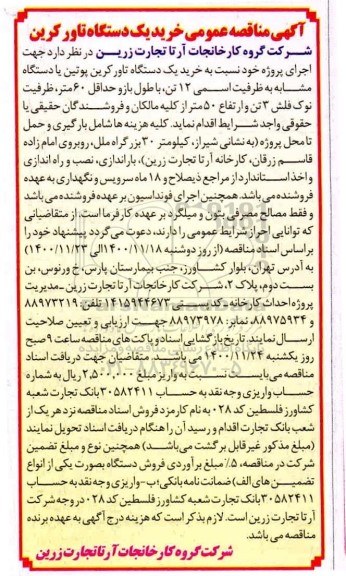 آگهی مناقصه عمومی خرید یک دستگاه تاور کرین
شرکت گروه کارخانجات آرتا تجارت زرین در نظر دارد جهت
اجرای پروژه خود نسبت به خرید یک دستگاه تاورکرین پوتین یا دستگاه
مشابه به ظرفیت اسمی ۱۲ تن، با طول بازو حداقل ۶۰ متر، ظرفیت
نوک فلش ۳ تن و ارتفاع ۵۰ متر از کلیه مالکان و فروشندگان حقیقی یا
حقوقی واجد شرایط اقدام نماید. کلیه هزینه ها شامل بارگیری و حمل
تا محل پروژه (به نشانی شیراز، کیلومتر ۳۰ بزرگراه ملل، روبروی امام زاده
قاسم زرقان، کارخانه آرتا تجارت زرین)، باراندازی، نصب و راه اندازی
و اخذ استاندارد از مراجع ذیصلاح و ۱۸ ماه سرویس و نگهداری به عهده
فروشنده می باشد. همچنین اجرای فونداسیون بر عهده فروشنده می باشد
و فقط مصالح مصرفی بتون و میلگرد بر عهده کارفرما است. از متقاضیانی
که توانایی احراز شرایط عمومی را دارند، دعوت می گردد پیشنهاد خود را
براساس اسناد مناقصه (از روز دوشنبه ۱۴۰۰/۱۱/۱۸ الی ۱۴۰۰/۱۱/۲۳)
به آدرس تهران، بلوار کشاورز، جنب بیمارستان پارس، خ ورنوس، بن
بست دوم، پلاک ۲، شرکت کارخانجات آرتا تجارت زرین ـ مدیریت
پروژه احداث کارخانه ـ کدپستی ۱۴۱۵۹۴۴۶۷۳ تلفن: ۸۸۹۷۳۲۱۹
و ۸۸۹۷۵۹۳۴، نمابر: ۸۸۹۷۳۹۷۸ جهت ارزیابی و تعیین صلاحیت
ارسال نمایند. تاریخ بازگشایی اسناد و پاکت های مناقصه ساعت ۹ صبح
روز یکشنبه ۱۴۰۰/۱۱/۲۴ می باشد. متقاضیان جهت دریافت اسناد
مناقصه می بایست نسبت به واریز مبلغ ۲,۵۰۰,۰۰۰ ریال به شماره
حساب واریزی وجه نقد به حساب ۳۰۵۸۲۴۱۱ بانک تجارت شعبه
کشاورز فلسطین کد ۰۲۸ به نام کارمزد فروش اسناد مناقصه نزد هر یک از
شعب بانک تجارت اقدام و رسید آن را هنگام دریافت اسناد تحویل نمایند
(مبلغ مذکور غیر قابل برگشت می باشد) همچنین نوع و مبلغ تضمین
شرکت در مناقصه، ۵٪ مبلغ برآوردی فروش دستگاه بصورت یکی از انواع
تضمین های الف) ضمانت نامه بانکی؛ ب- واریزی وجه نقد به حساب
۳۰۵۸۲۴۱۱ بانک تجارت شعبه کشاورز فلسطین کد ۰۲۸ در وجه شرکت
آرتا تجارت زرین است. لازم بذکر است که هزینه درج آگهی به عهده برنده
مناقصه می باشد.
شرکت گروه کارخانجات آرتا تجارت زرین